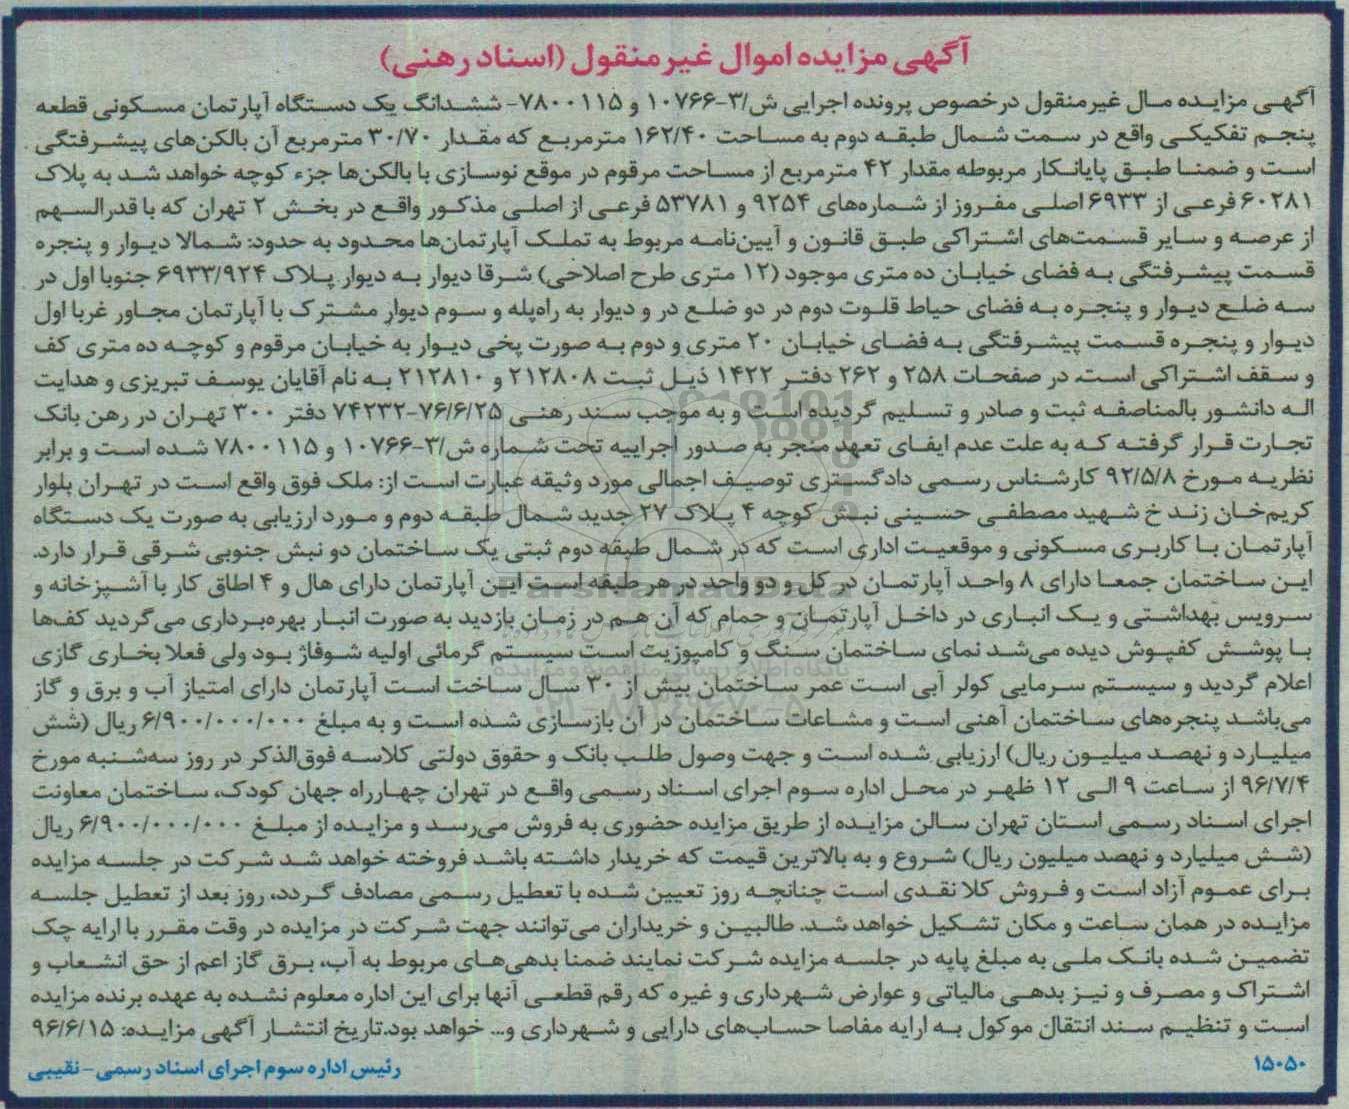 آگهی مزایده اموال غیر منقول (اسناد رهنی)
آگهـی مزایـده مـال غیرمنقول درخصوص پرونده اجرایی ش/۳-۱۰۷۶۶ و ۷۸۰۰۱۱۵- ششدانگ یک دسـتگاه آپارتمان مسـکونی قطعه
پنجـم تفکیکـی واقع در سـمت شـمال طبقـه دوم به مسـاحت ۱۶۲/۴۰ مترمربـع که مقـدار ۳۰/۷۰ مترمربع آن بالکن‌های پیشـرفتگی
اسـت و ضمنـا طبـق پایانـکار مربوطه مقدار ۴۲ مترمربع از مسـاحت مرقوم در موقع نوسـازی با بالکن‌ها جزء کوچه خواهد شـد به پلاک
۶۰۲۸۱ فرعـی از ۶۹۳۳ اصلـی مفـروز از شـماره‌های ۹۲۵۴ و ۵۳۷۸۱ فرعـی از اصلـی مذکـور واقـع در بخـش ۲ تهران که با قدرالسـهم
از عرصـه و سـایر قسـمت‌های اشـتراکی طبـق قانون و آیین‌نامـه مربوط به تملـک آپارتمان‌ها محـدود به حدود: شـمالا دیـوار و پنجره
قسـمت پیشـرفتگی بـه فضای خیابـان ده متری موجود (۱۲ متری طرح اصلاحی) شـرقا دیوار بـه دیوار پـلاک ۶۹۳۳/۹۲۴ جنوبا اول در
سـه ضلع دیـوار و پنجـره بـه فضای حیاط قلـوت دوم در دو ضلـع در و دیوار به راه‌پله و سـوم دیوار مشـترک با آپارتمان مجـاور غربا اول
دیـوار و پنجـره قسـمت پیشـرفتگی بـه فضـای خیابـان ۲۰ متری و دوم بـه صورت پخی دیـوار به خیابـان مرقوم و کوچـه ده متری کف
و سـقف اشـتراکی اسـت. در صفحـات ۲۵۸ و ۲۶۲ دفتـر ۱۴۲۲ ذیـل ثبـت ۲۱۲۸۰۸ و ۲۱۲۸۱۰ بـه نام آقایان یوسـف تبریزی و هدایت
الـه دانشـور بالمناصفـه ثبت و صادر و تسـلیم گردیده اسـت و به موجب سـند رهنـی ۷۶/۶/۲۵-۷۴۲۳۲ دفتر ۳۰۰ تهـران در رهن بانک
تجارت قـرار گرفتـه کـه به علت عدم ایفـای تعهد منجر به صدور اجراییه تحت شـماره ش/۳-۱۰۷۶۶ و ۷۸۰۰۱۱۵ شـده اسـت و برابر
نظریـه مـورخ ۹۲/۵/۸ کارشـناس رسـمی دادگسـتری توصیـف اجمالی مورد وثیقه عبارت اسـت از: ملک فوق واقع اسـت در تهـران بلوار
کریم‌خان زنـد خ شـهید مصطفـی حسـینی نبـش کوچه ۴ پـلاک ۲۷ جدید شـمال طبقـه دوم و مورد ارزیابی به صورت یک دسـتگاه
آپارتمـان بـا کاربـری مسـکونی و موقعیـت اداری اسـت که در شـمال طبقه دوم ثبتی یک سـاختمان دو نبش جنوبی شـرقی قـرار دارد.
ایـن سـاختمان جمعـا دارای ۸ واحـد آپارتمـان در کل و دو واحد در هر طبقه اسـت ایـن آپارتمان دارای هال و ۴ اطاق کار با آشـپزخانه و
سـرویس بهداشـتی و یـک انبـاری در داخـل آپارتمـان و حمـام که آن هـم در زمان بازدید به صورت انبار بهره‌بـرداری می‌گردید کف‌ها
بـا پوشـش کفپـوش دیده می‌شـد نمای سـاختمان سـنگ و کامپوزیت اسـت سیسـتم گرمائی اولیه شـوفاژ بـود ولی فعلا بخـاری گازی
اعلام گردیـد و سیسـتم سـرمایی کولر آبی اسـت عمر سـاختمان بیش از ۳۰ سـال سـاخت اسـت آپارتمان دارای امتیاز آب و بـرق و گاز
می‌باشـد پنجره‌های سـاختمان آهنی اسـت و مشـاعات سـاختمان در آن بازسـازی شـده اسـت و به مبلغ ۶/۹۰۰/۰۰۰/۰۰۰ ریال (شش
میلیـارد و نهصـد میلیـون ریال) ارزیابی شـده اسـت و جهت وصـول طلـب بانک و حقوق دولتی کلاسـه فوق‌الذکر در روز سه‌شـنبه مورخ
۹۶/۷/۴ از سـاعت ۹ الـی ۱۲ ظهـر در محـل اداره سـوم اجرای اسـناد رسـمی واقع در تهران چهـارراه جهان کودک، سـاختمان معاونت
اجرای اسـناد رسـمی اسـتان تهران سـالن مزایـده از طریق مزایده حضـوری به فروش می‌رسـد و مزایـده از مبلـغ ۶/۹۰۰/۰۰۰/۰۰۰ ریال
(شـش میلیـارد و نهصد میلیون ریال) شـروع و به بالاترین قیمت که خریدار داشـته باشـد فروخته خواهد شـد شـرکت در جلسـه مزایده
بـرای عمـوم آزاد اسـت و فـروش کلا نقدی اسـت چنانچـه روز تعیین شـده با تعطیل رسـمی مصادف گـردد، روز بعـد از تعطیـل جلسـه
مزایـده در همان سـاعت و مکان تشـکیل خواهد شـد. طالبیـن و خریداران می‌توانند جهت شـرکت در مزایده در وقت مقـرر با ارایه چک
تضمیـن شـده بانـک ملـی به مبلـغ پایه در جلسـه مزایده شـرکت نمایند ضمنا بدهی‌هـای مربوط به آب، بـرق گاز اعم از حق انشـعاب و
اشـتراک و مصـرف و نیـز بدهـی مالیاتـی و عوارض شـهرداری و غیره که رقم قطعـی آنها برای این اداره معلوم نشـده به عهده برنده مزایده
اسـت و تنظیـم سـند انتقـال موکول بـه ارایه مفاصا حسـاب‌های دارایی و شـهرداری و... خواهد بود.تاریخ انتشـار آگهی مزایـده: ۹۶/۶/۱۵
۱۵۰۵۰
رئیس اداره سوم اجرای اسناد رسمی - نقیبی